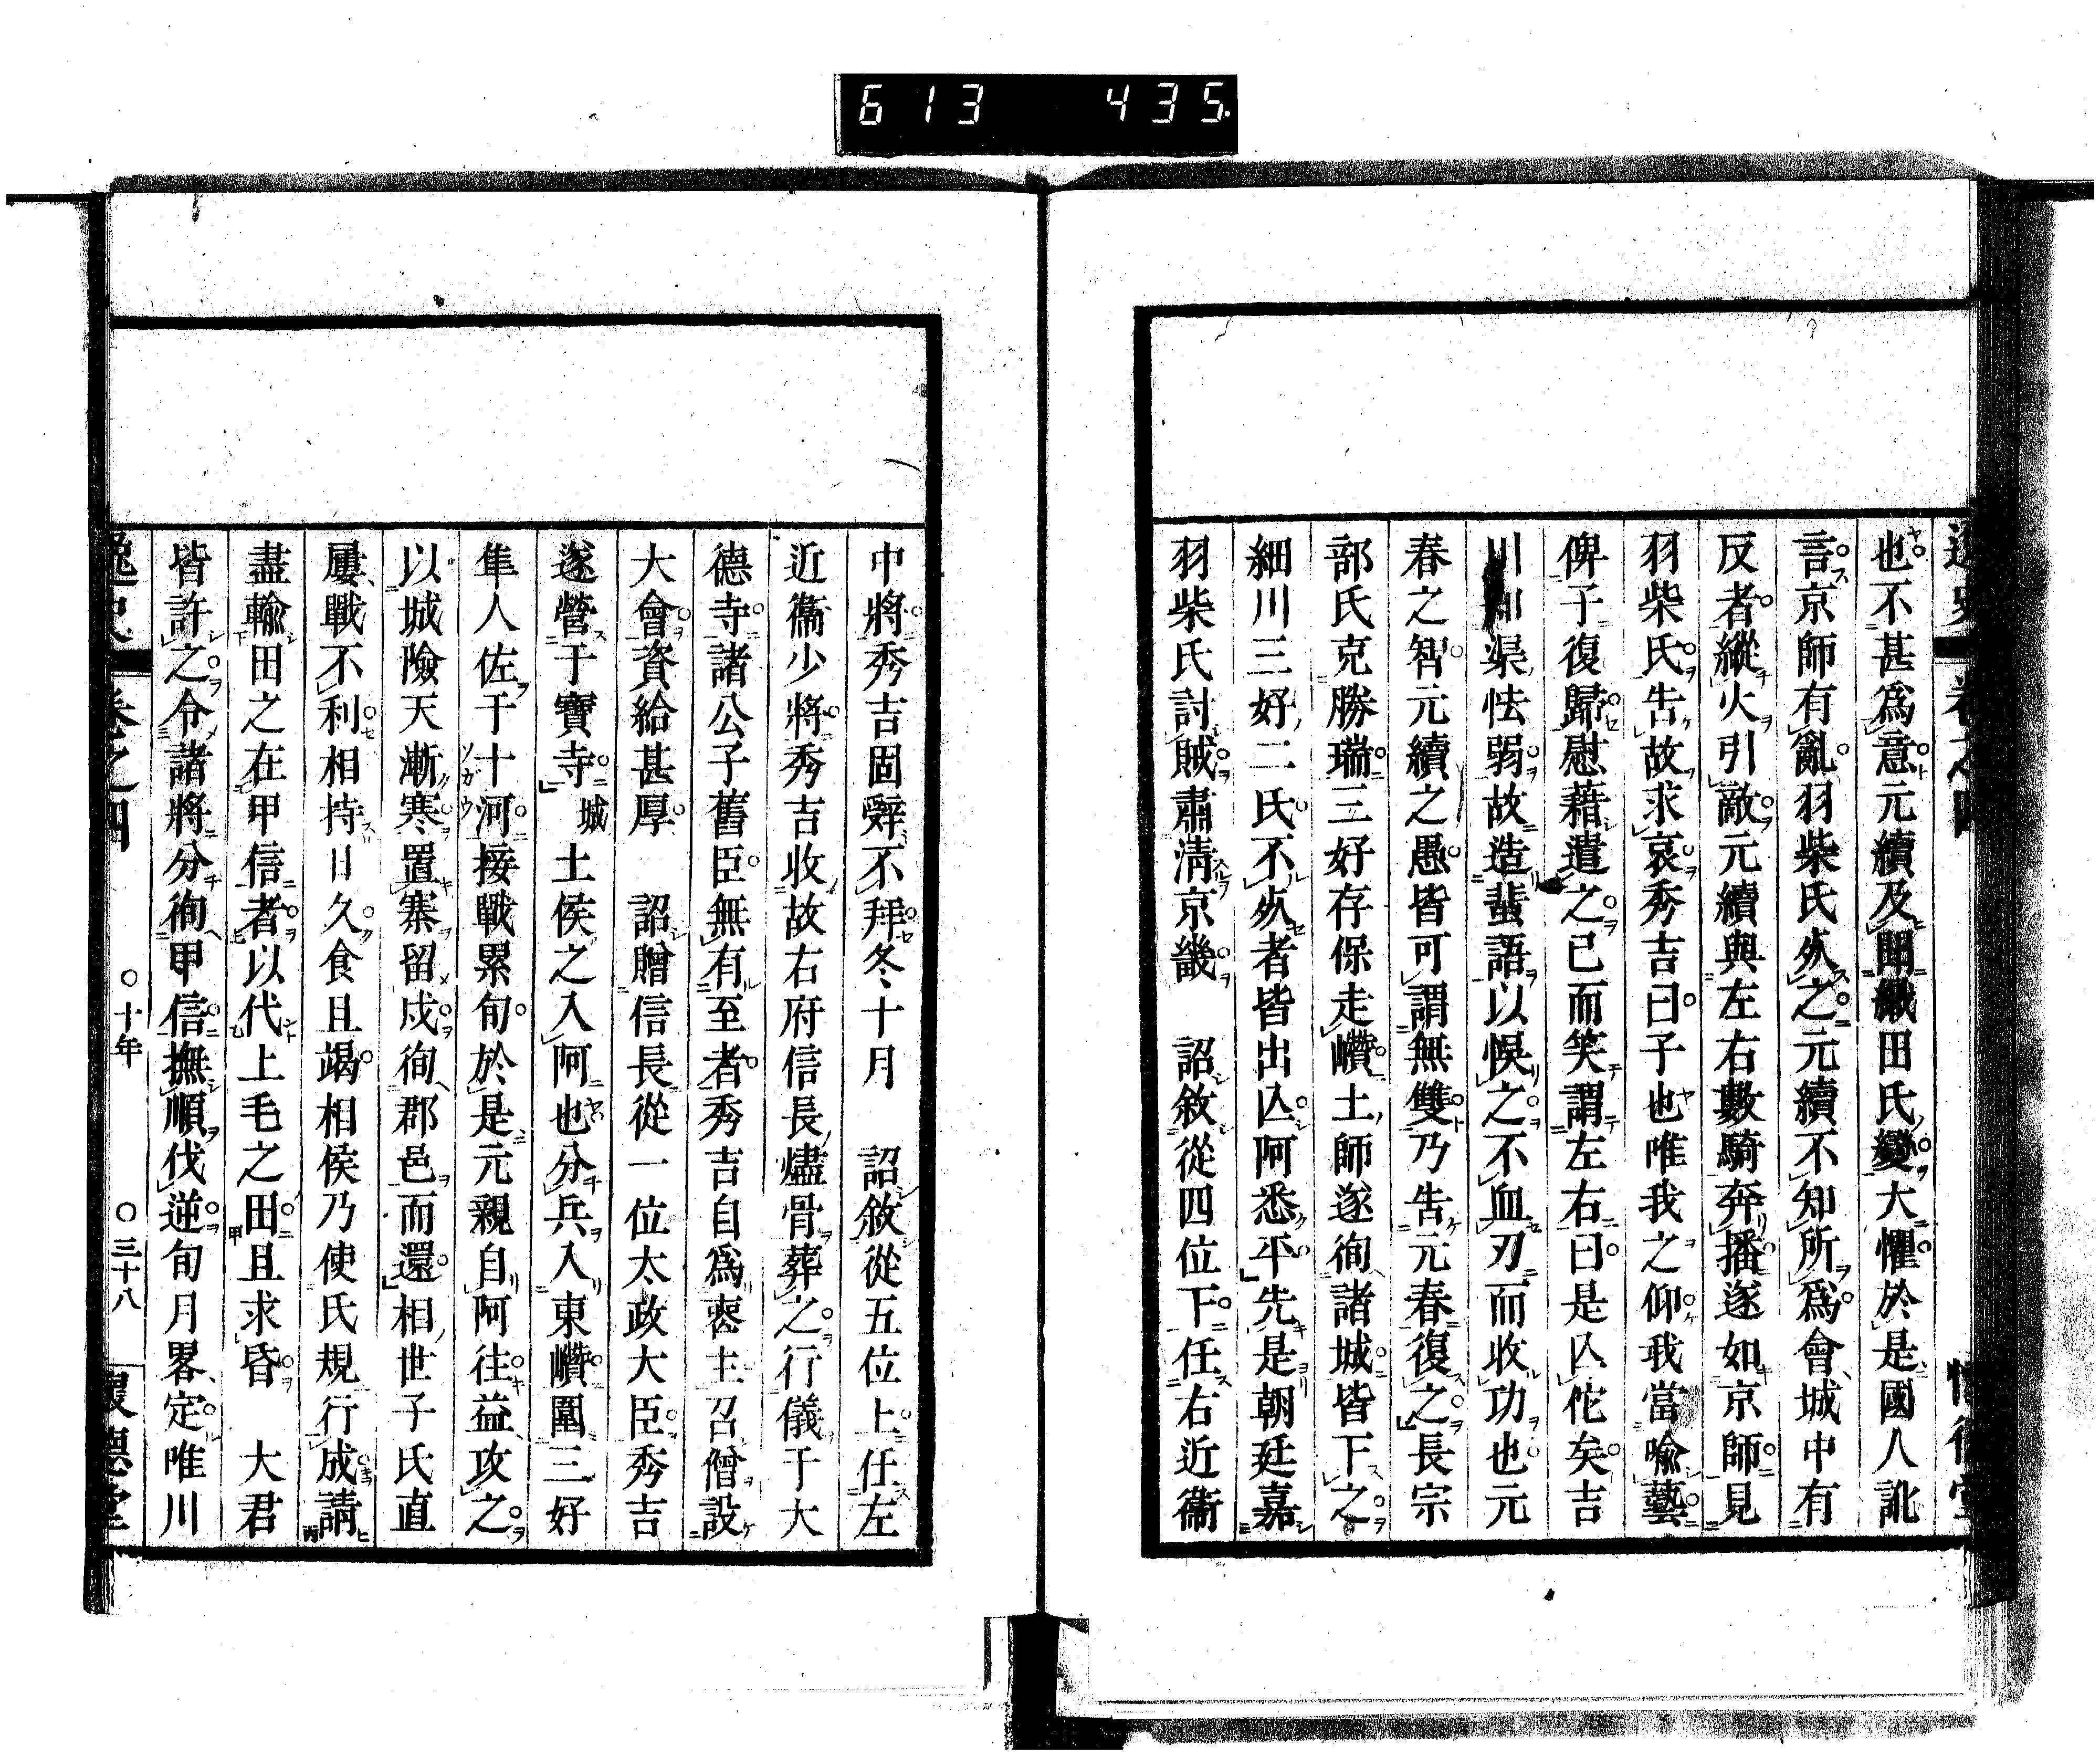 613 435
也不甚爲意元續及聞織田氏變大懼於是國人訛
言京師有亂羽柴氏夗之元續不知所爲會城中有
反者縱火引敵元續與左右數騎奔播遂如京師見
羽柴氏告故求哀秀吉曰子也唯我之仰我當喩藝
俾子復歸慰藉遣之已而笑謂左右曰是亾佗矣吉
川渠怯弱故造蜚語以惧之不血刃而收功也元
春之智元續之愚皆可謂無雙乃告元春復之長宗
部氏克勝瑞三好存保走巑土師遂徇諸城皆下之
細川三好二氏不夗者皆出亾阿悉平先是朝廷嘉
羽柴氏討賊肅淸京畿 詔敘從四位下任右近衞
中將秀吉固辭不拜冬十月 詔敘從五位上任左
近衞少將秀吉收故右府信長燼骨葬之行儀于大
德寺諸公子舊臣無有至者秀吉自爲喪主召僧設
大會資給甚厚 詔贈信長從一位太政大臣秀吉
遂營于寶寺城 土侯之入阿也分兵入東巑圍三好
隼人佐于十河接戰累旬於是元親自阿往益攻之
以城險天漸寒置寨留戍徇郡邑而還相世子氏直
屢戰不利相持日久食且竭相侯乃使氏規行成請
盡輸田之在甲信者以代上毛之田且求昏 大君
皆許之令諸將分徇甲信撫順伐逆旬月畧定唯川
逸史 卷之四 ○十年 ○三十八 懷德堂